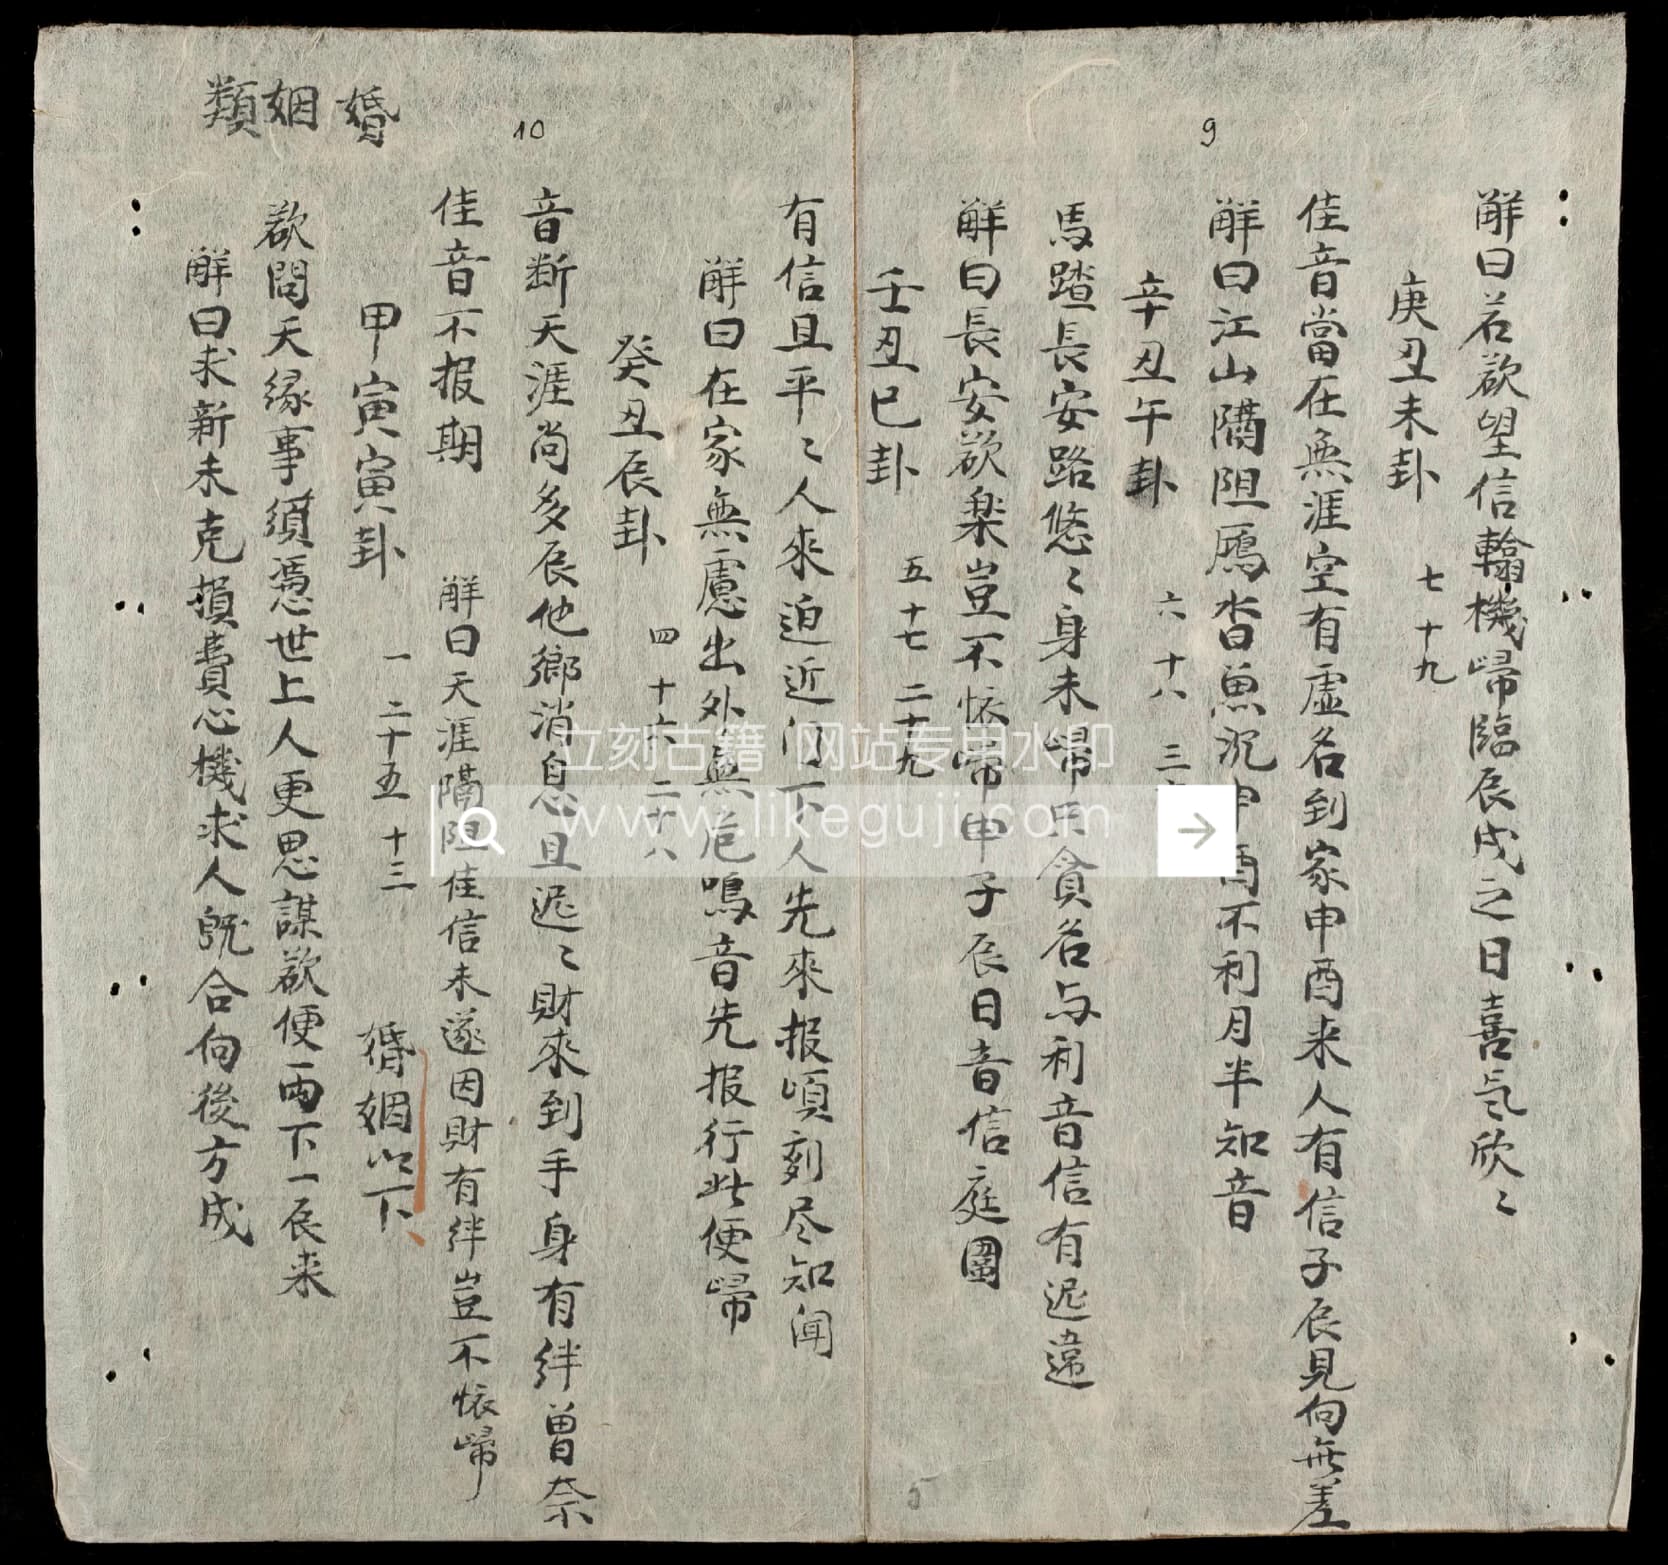 9
解曰若欲望信翰機歸臨辰戌之日喜气欣〻
庚丑未卦 七 十九
佳音當在無涯空有虛名到家申酉来人有信子辰見向無差
解曰江山隔阻鴈杳魚沉申酉不利月半知音
辛丑午卦 六 十八 三
馬踏長安路悠〻身未歸只貪名与利音信有遲違
解曰長安欲樂豈不怀歸申子辰日音信庭圍
壬丑巳卦 五 十七 二十九
有信且平〻人來迫近门下人先來报頃刻尽知闻
10
解曰在家無慮出外無危鳴音先报行此便歸
癸丑辰卦 四 十六 二十八
音断天涯尚多辰他鄉消息且遲〻財來到手身有絆曽奈
佳音不报期 解曰天涯隔阻佳信未遂因財有絆豈不怀歸
甲寅寅卦 一 二十五 十三 婚姻以下
欲問天縁事須憑世上人更思謀欲便兩下一辰来
解曰求新未克損費心機求人既合向後方成
婚姻類
立刻古籍 网站专用水印
www.likeguji.com